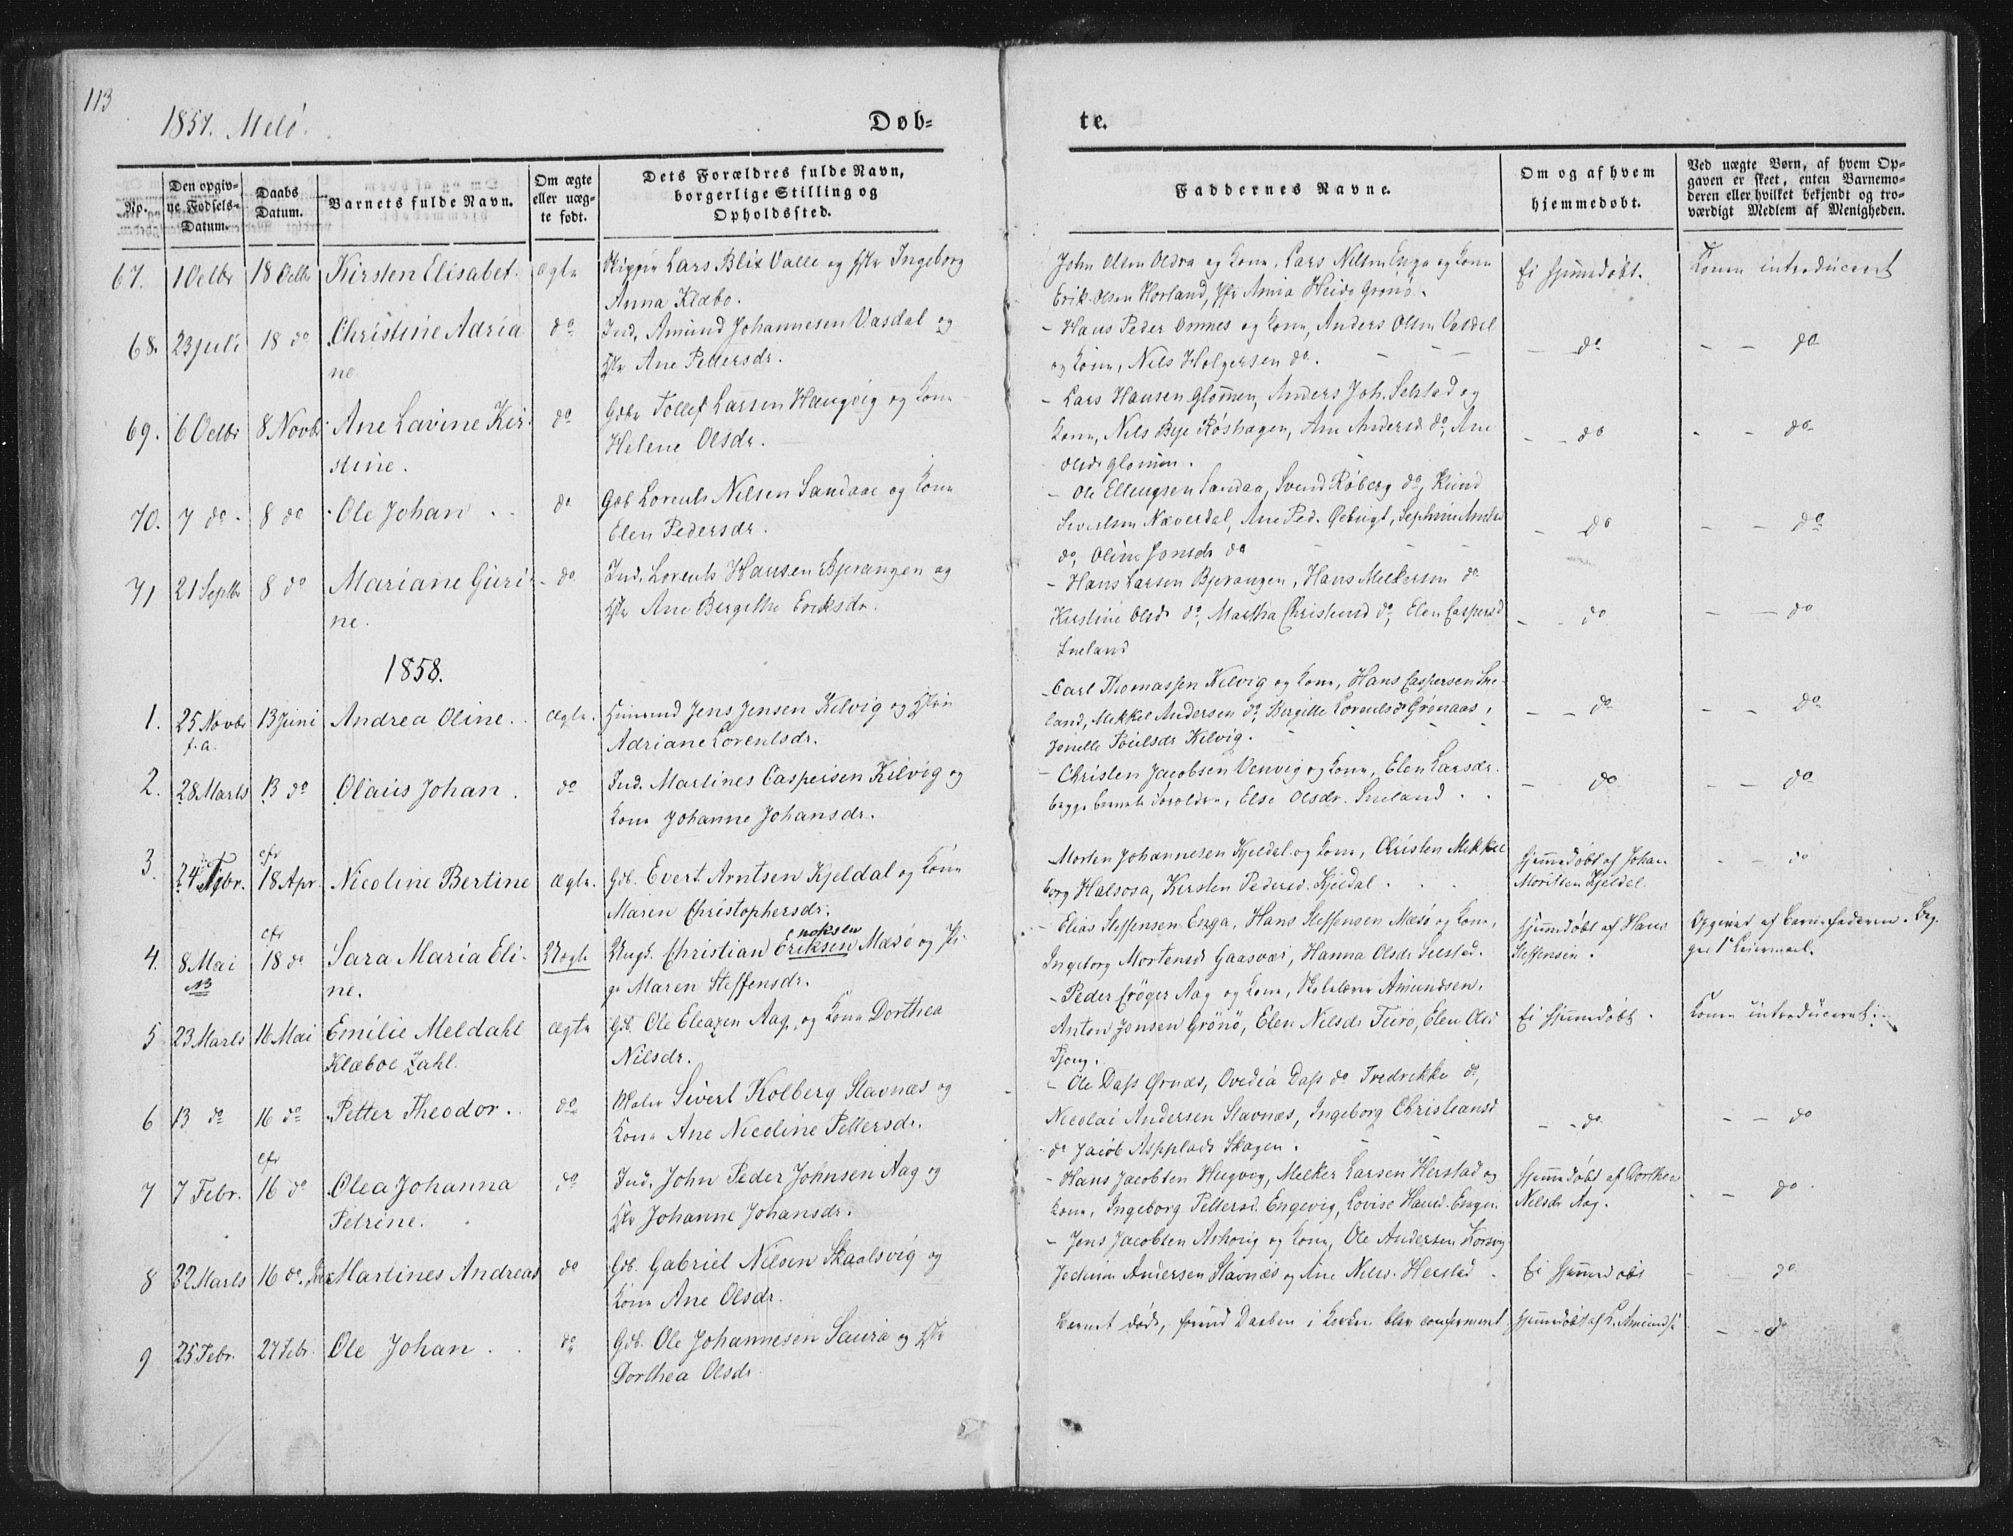 113
1857. Melö.
Døb=
te.
No.
Den opgiv=
ne Fødsels=
Datum.
Daabs
Datum.
Barnets fulde Navn.
Om ægte
eller uæg=
te født.
Dets Forældres fulde Navn,
borgerlige Stilling og
Opholdssted.
Faddernes Navne.
Om og af hvem
hjemmedøbt.
Ved uægte Børn, af hvem Op=
gaven er skeet, enten Barnemo=
deren eller hvilket bekjendt og tro=
værdigt Medlem af Menigheden.
67. 1 Octbr 18 Octbr Kirsten Elisabet. ægte Skipper Lars Blix Valle og Hstr Ingeborg
Anna Klæbo.
John Olsen Oldra og Kone, Lars Nilsen Enga og Kone
Erik Olsen Horland, Jfr Anna Heide Grønø.
Ei hjemmedøbt.
Konen introduceret
68. 23 juli 18 do Christine Adria
ne
do Ind. Amund Johannesen Vasdal og
Hstr Ane Pettersdr.
- Hans Peder Omnes og Kone, Anders Olsen Valdal
og Kone, Nils Holgersen do. - - -
- do
- - do
69. 6 Octbr 8 Novbr Ane Lavine Kir-
stine.
do Gdbr Tollef Larsen Haugvig og Kone
Helene Olsdr.
- Lars Hansen Glommen, Anders Joh. Selstad og
Kone, Nils Beje Røshagen, Ane Andersd do, Ane
Olsdr Glommen.
- - do
- - do
70. 7 do 8 do Ole Johan . . do Gdb Lorents Nilsen Sandaae og Kone
Elen Pedersdr.
- Ole Ellengsen Sandaa, Svend Røberg do, Knud
Sivertsen Næverdal, Ane Ped. Øebugt, Sephine Amtsd
do, Oline Jonsdr do - - -
- do
- - do
71 21 Septbr 8 do Mariane Guri-
ne.
- do Ind. Lorents Hansen Bjerangen og
Hstr Ane Bergitte Eriksdr.
- Hans Larsen Bjerangen, Hans Melkersen do
Kirstine Olsd do, Martha Christensd do, Elen Caspersd
Sneland
- - do
- - do
1858.
1. 25 Novbr
f.a.
13 Juni Andrea Oline . . ægte. Huusmd Jens Jensen Kilvig og Hstr
Adriane Lorentsdr.
- Carl Thomassen Kilvig og Kone, Hans Caspersen Sne-
land, Mekkel Andersen do, Bergitte Lorentsdr Grønaas,
Jonette Poulsdr Kilvig. - -
- - do
- - do
2. 28 Marts 13 do Olaus Johan . do Ind. Martines Caspersen Kilvig og
Kone Johanne Johansdr.
- Christen Jacobsen Venvig og Kone, Elen Larsdr.
begge Barnets Forældre, Else Olsdr. Sneland . .
- - do
- - do
3. 24 Febr. cfr
18 Apr. Nicoline Bertine ægte. Gdb. Evert Arntsen Kjeldal og Kone
Maren Christophersdr.
Morten Johannesen Kjeldal og Kone, Christen Mekkel
borg Halsosa, Kirsten Pedersd. Kjeldal . . .
Hjemmedøbt af Johan
Moritsen Kjeldal.
- - do
4. 8 Mai
NB
cfr
18 do Sara Maria Eli-
ne.
Uægte Ungk. Christian Eriksen Mæsö og Pi-
noksen
ge Maren Steffensdr.
- Elias Steffensen Enga, Hans Steffensen Mæsö og Kone,
Ingeborg Mortensd Gaasvær, Hanna Olsdr Selstad.
Hjemmedøbt af Hans
Steffensen.
Opgivet af Barnefaderen. Beg-
ges 1ste Leiermaal.
5 23 Marts 16 Mai Emilie Meldahl
Klæboe Zahl.
ægte Gdb. Ole Eleazen Aag og Kone Dorthea
Nilsdr.
- Peder Crøger Aag og Kone, Skolelærer Amundsen,
Anton Jonsen Grönö, Elen Nilsdr Teiro, Elen Olsd
Tjong.
Ei hjemmedøbt .
Konen introduceret.
6 13 do 16 do Petter Theodor . . do Maler Sivert Kolberg Stavnæs og
Kone Ane Nicoline Pettersdr.
- Ole Dass Ørnæs, Ovedia Dass do Fredrikke do,
Nicolai Andersen Stavnæs, Ingeborg Christiansd
do Jacob Aspplads Skagen . - -
- - do
- - do
7 7 Febr. cfr
16 do Olea Johanna
Petrine.
do Ind. John Peder Johnsen Aag og
Hstr Johanne Johansdr.
- Hans Jacobsen Hugvig, Melker Larsen Herstad og
Kone, Ingeborg Pettersd. Engevig, Lovise Hansd. Engen
Hjemmedøbt af Dorthea
Nilsdr Aag.
- - do
8 22 Marts 16 do Martines Andreas do Gdb. Gabriel Nilsen Skaalsvig og
Kone Ane Olsdr.
- Jens Jacobsen Arhoug og Kone, Ole Andersen Korsvig
Jochim Andersen Stavnæs og Ane Nilsd. Herstad .
Ei hjemmedøbt
- - do
9 25 Febr. 27 Febr. Ole Johan . . do Gdb. Ole Johannesen Saura og Hstr
Dorthea Olsdr
Barnet døde, førend Daaben i Kirken blev confirmeret
Hjemmedøbt af L. Amunds.
- - do